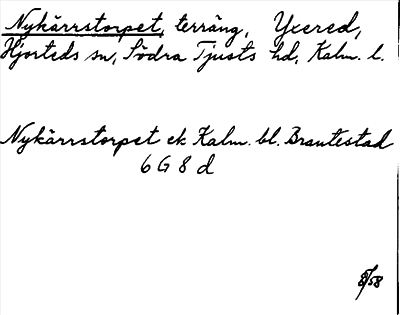 Nykärrstorpet, terräng, Yxered,
Hjorteds sn, Södra Tjusts hd, Kalm. l.
Nykärrstorpet ek Kalm. bl. Brantestad
6 G 8 d
8/58